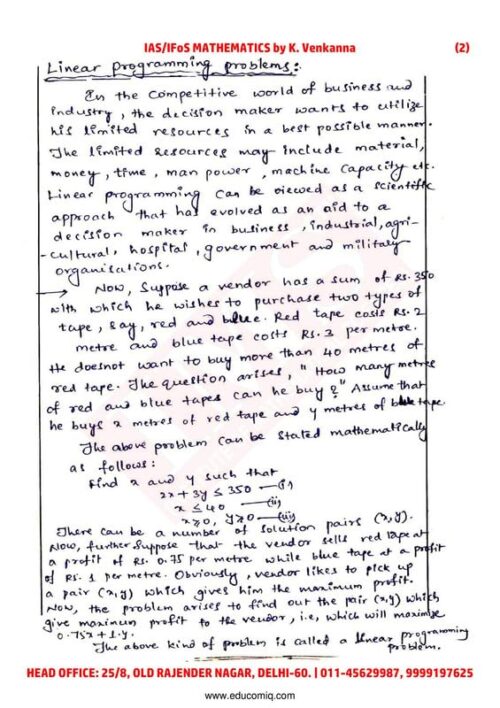 IAS/IFoS MATHEMATICS by K. Venkanna (2)
Linear programming problems:.
In the competitive world of business and
industry, the decision maker wants to utilize
his limited resources in a best possible manner.
The limited resources may include material,
money, time, man power, machine capacity etc.
Linear programming can be viewed as a scientific
approach that has evolved as an aid to a
decision maker in business, industrial, agri-
-cultural, hospital, government and military
organisations.
→ Now, Suppose a vendor has a sum of Rs. 350
with which he wishes to purchase two types of
tape, say, red and blue. Red tape costs Rs. 2
metre and blue tape costs Rs. 3 per metre.
He doesnot want to buy more than 40 metres of
red tape. The question arises, "How many metres
of red and blue tapes can he buy?" Assume that
he buys x metres of red tape and y metres of blue tape
The above problem can be stated mathematically
as follows:
Find x and y such that
2x + 3y ≤ 350 —(i)
x ≤ 40 —(ii)
x ≥ 0, y ≥ 0 —(iii)
There can be a number of solution pairs (x, y).
Now, further suppose that the vendor sells red tape at
a profit of Rs. 0.75 per metre while blue tape at a profit
of Rs. 1 per metre. Obviously, vendor likes to pick up
a pair (x, y) which gives him the maximum profit.
Now, the problem arises to find out the pair (x, y) which
give maximum profit to the vendor, i.e, which will maximise
0.75x + 1.y.
The above kind of problem is called a linear programming
problem.
HEAD OFFICE: 25/8, OLD RAJENDER NAGAR, DELHI-60. | 011-45629987, 9999197625
www.educomiq.com